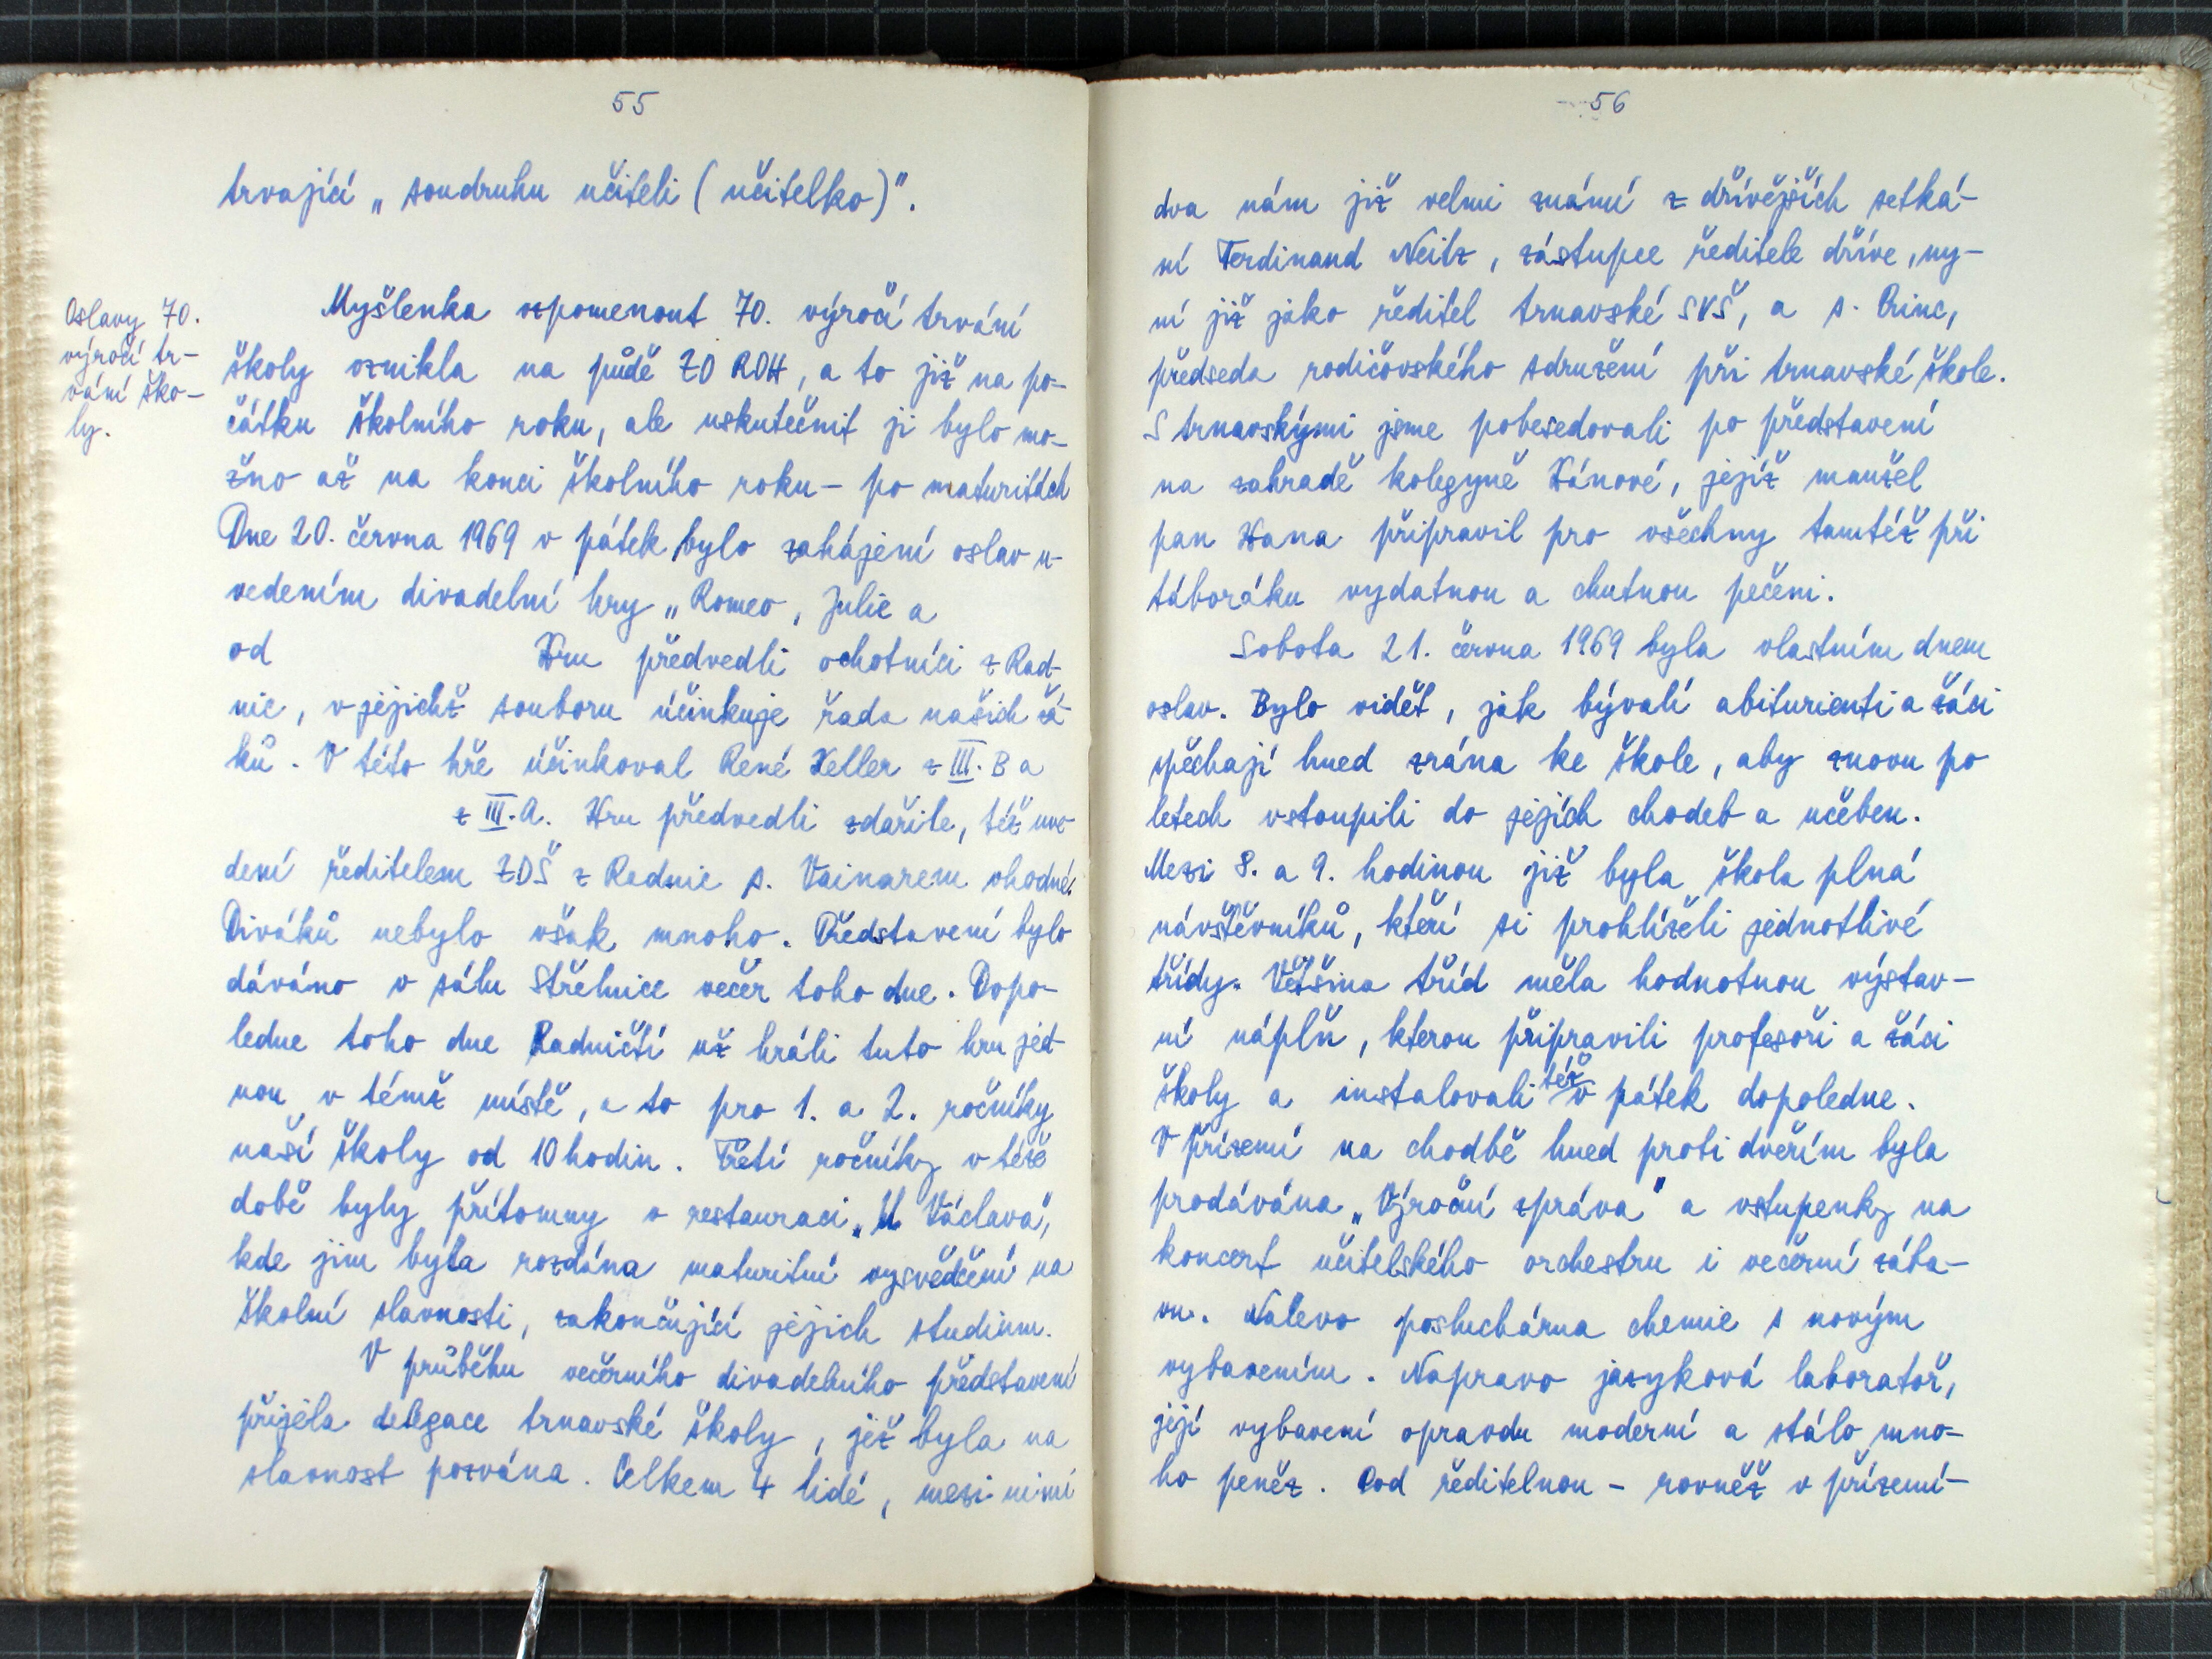 55
trvající „soudruhu učiteli (učitelko)".
Oslavy 70.
výročí tr-
vání ško-
ly.
Myšlenka vzpomenout 70. výročí trvání
školy vznikla na půdě ZO ROH, a to již na po-
čátku školního roku, ale uskutečnit ji bylo mo-
žno až na konci školního roku - po maturitách
Dne 20. června 1969 v pátek bylo zahájení oslav u-
vedením divadelní hry „Romeo, Julie a
od Hru předvedli ochotníci z Rad-
nic, v jejichž souboru účinkuje řada našich žá-
ků. V této hře účinkoval René Keller z III. B a
z III. A. Hru předvedli zdařile, též uve-
deni ředitelem ZDŠ z Radnic s. Vainarem vhodně.
Diváků nebylo však mnoho. Představení bylo
dáváno v sálu Střelnice večer toho dne. Dopo-
ledne toho dne Radničtí už hráli tuto hru jed-
nou v témž místě, a to pro 1. a 2. ročníky
naší školy od 10 hodin. Třetí ročníky v téže
době byly přítomny v restauraci „U Václava",
kde jim byla rozdána maturitní vysvědčení na
školní slavnosti, zakončující jejich studium.
V průběhu večerního divadelního představení
přijela delegace trnavské školy, jež byla na
slavnost pozvána. Celkem 4 lidé, mezi nimi
56
dva nám již velmi známí z dřívějších setká-
ní Ferdinand Neitz, zástupce ředitele dříve, ny-
ní již jako ředitel trnavské SVŠ, a s. Princ,
předseda rodičovského sdružení při trnavské škole.
S trnavskými jsme pobesedovali po představení
na zahradě kolegyně Hánové, jejíž manžel
pan Hana připravil pro všechny tamtéž při
táboráku vydatnou a chutnou pečeni.
Sobota 21. června 1969 byla vlastním dnem
oslav. Bylo vidět, jak bývalí abiturienti a žáci
spěchají hned zrána ke škole, aby znovu po
letech vstoupili do jejích chodeb a učeben.
Mezi 8. a 9. hodinou již byla škola plná
návštěvníků, kteří si prohlíželi jednotlivé
třídy. Většina tříd měla hodnotnou výstav-
ní náplň, kterou připravili profesoři a žáci
školy a instalovali též v pátek dopoledne.
V přízemí na chodbě hned proti dveřím byla
prodávána „Výroční zpráva" a vstupenky na
koncert učitelského orchestru i večerní zába-
vu. Nalevo posluchárna chemie s novým
vybavením. Napravo jazyková laboratoř,
její vybavení opravdu moderní a stálo mno-
ho peněz. Pod ředitelnou - rovněž v přízemí -